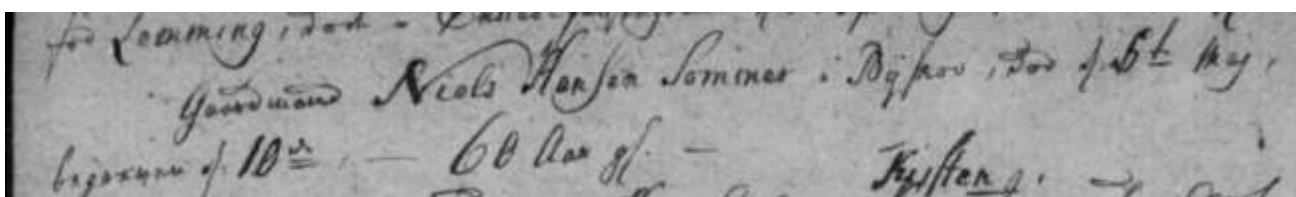 for Lemming, død
Gaardmand Niels Hansen Sommer i Bÿskov, død d. 6t Maj,
begraven d. 10de, — 60 Aar gl. —